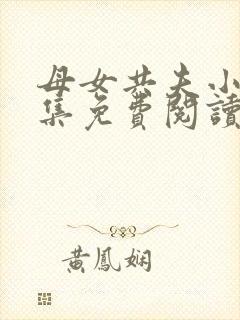 母女共夫小
集免費閱讀
黃鳳嫻